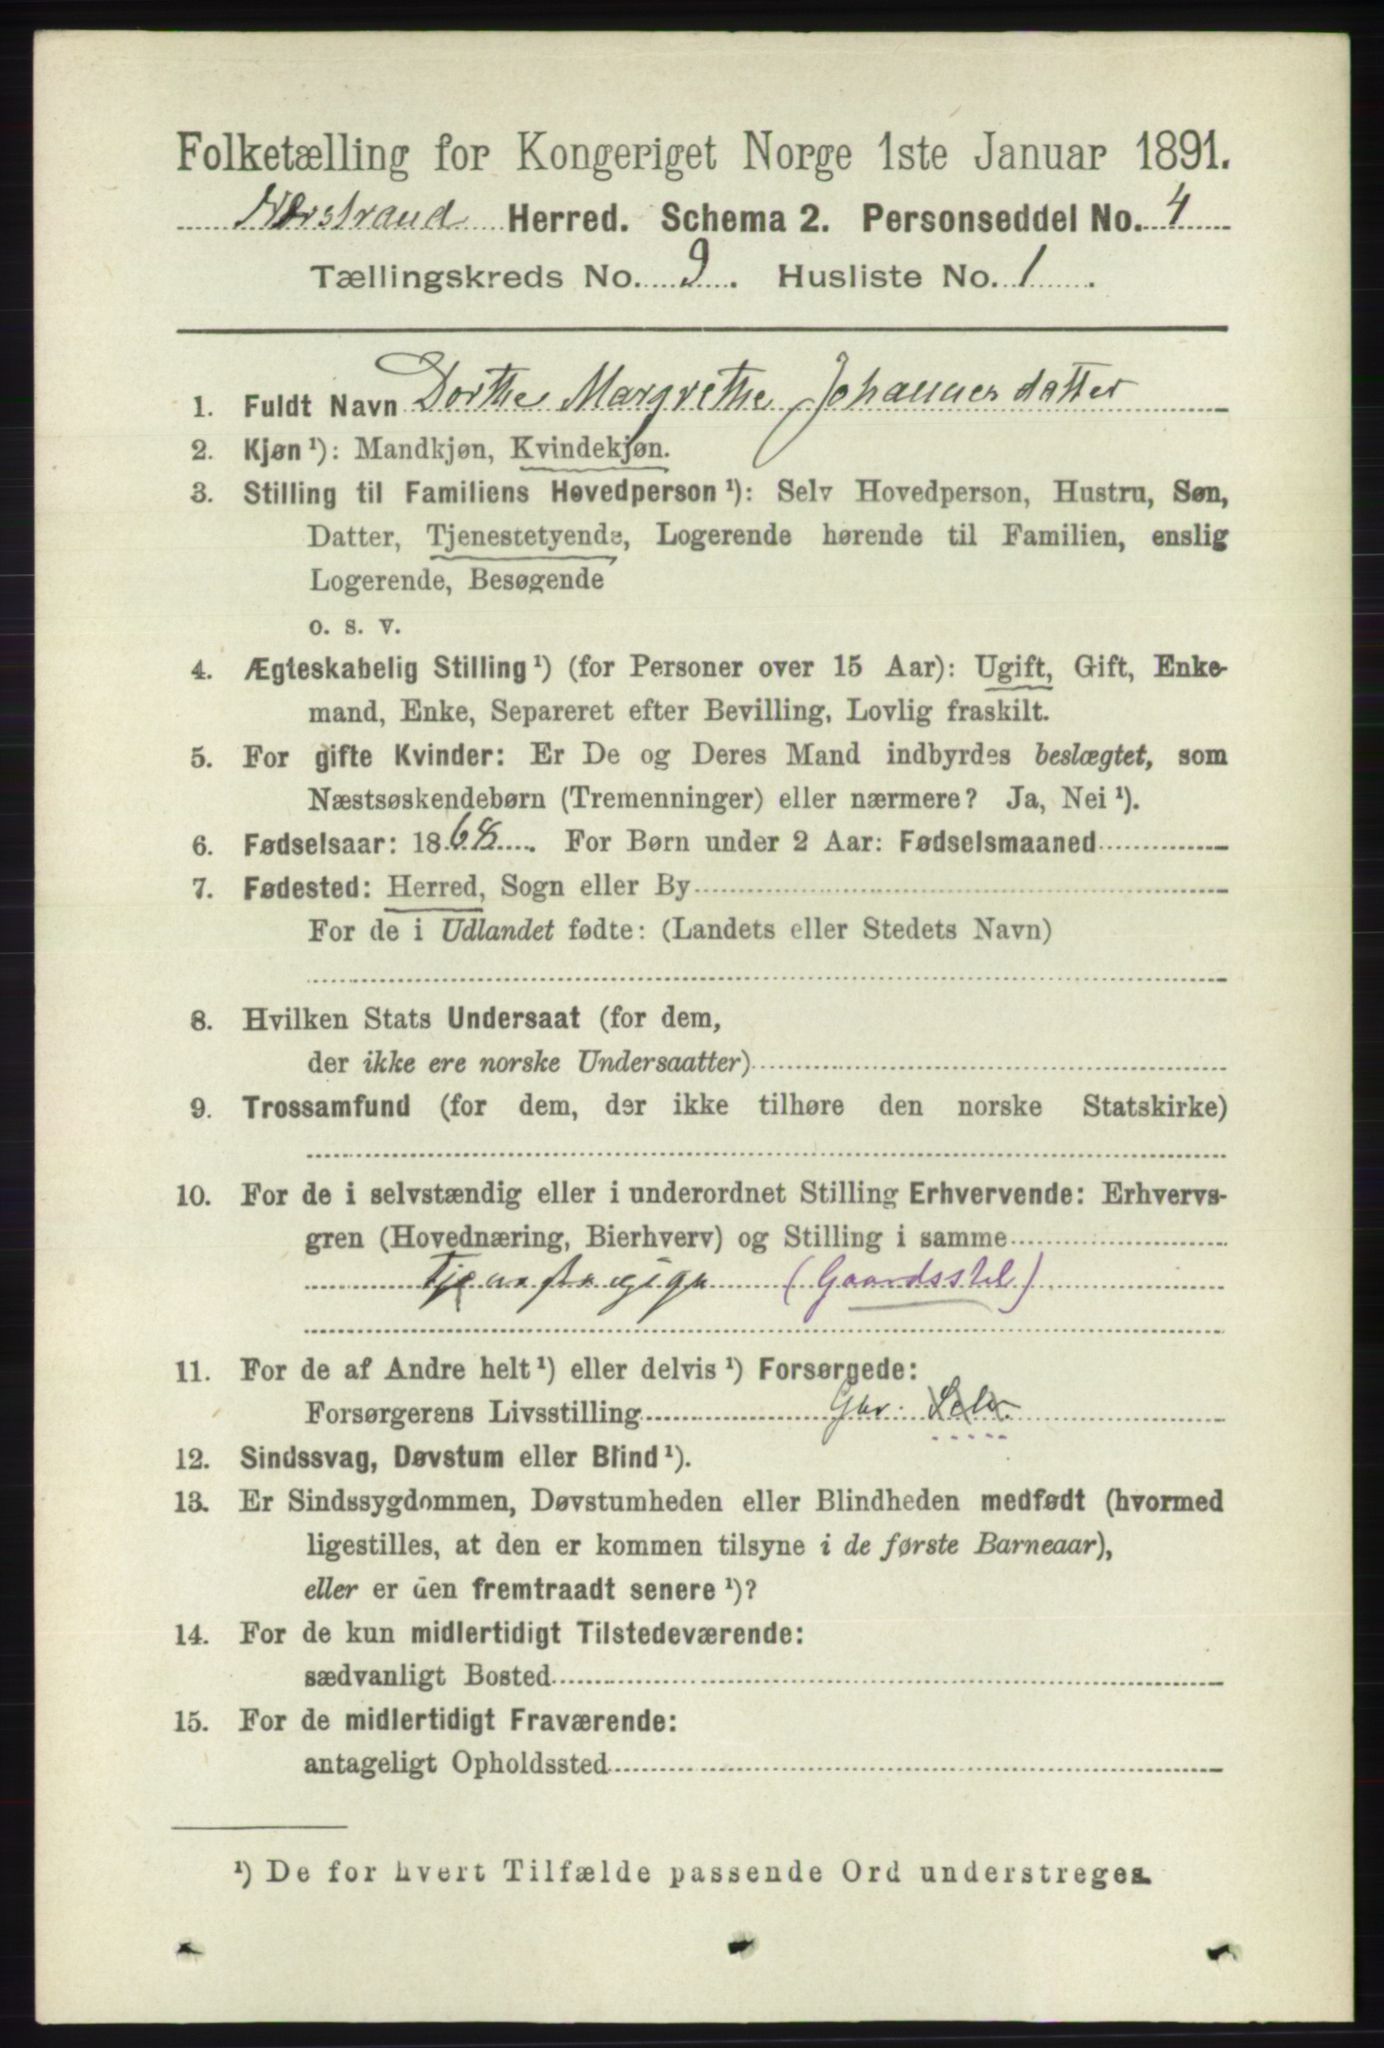 Folketælling for Kongeriget Norge 1ste Januar 1891.
Nerstrand Herred. Schema 2. Personseddel No. 4
Tællingskreds No. 9. Husliste No. 1
1. Fuldt Navn Dorthe Margrethe Johannesdatter
2. Kjøn ¹): Mandkjøn, Kvindekjøn.
3. Stilling til Familiens Hovedperson ¹): Selv Hovedperson, Hustru, Søn,
Datter, Tjenestetyende, Logerende hørende til Familien, enslig
Logerende, Besøgende
o. s. v.
4. Ægteskabelig Stilling ¹) (for Personer over 15 Aar): Ugift, Gift, Enke-
mand, Enke, Separeret efter Bevilling, Lovlig fraskilt.
5. For gifte Kvinder: Er De og Deres Mand indbyrdes beslægtet, som
Næstsøskendebørn (Tremenninger) eller nærmere? Ja, Nei ¹).
6. Fødselsaar: 1868. For Børn under 2 Aar: Fødselsmaaned
7. Fødested: Herred, Sogn eller By
For de i Udlandet fødte: (Landets eller Stedets Navn)
8. Hvilken Stats Undersaat (for dem,
der ikke ere norske Undersaatter)
9. Trossamfund (for dem, der ikke tilhøre den norske Statskirke)
10. For de i selvstændig eller i underordnet Stilling Erhvervende: Erhvervs-
gren (Hovednæring, Bierhverv) og Stilling i samme
(Gaardsstel)
11. For de af Andre helt ¹) eller delvis ¹) Forsørgede:
Forsørgerens Livsstilling Gbr. Selv.
12. Sindssvag, Døvstum eller Blind ¹).
13. Er Sindssygdommen, Døvstumheden eller Blindheden medfødt (hvormed
ligestilles, at den er kommen tilsyne i de første Barneaar),
eller er den fremtraadt senere ¹)?
14. For de kun midlertidigt Tilstedeværende:
sædvanligt Bosted
15. For de midlertidigt Fraværende:
antageligt Opholdssted
¹) De for hvert Tilfælde passende Ord understreges.